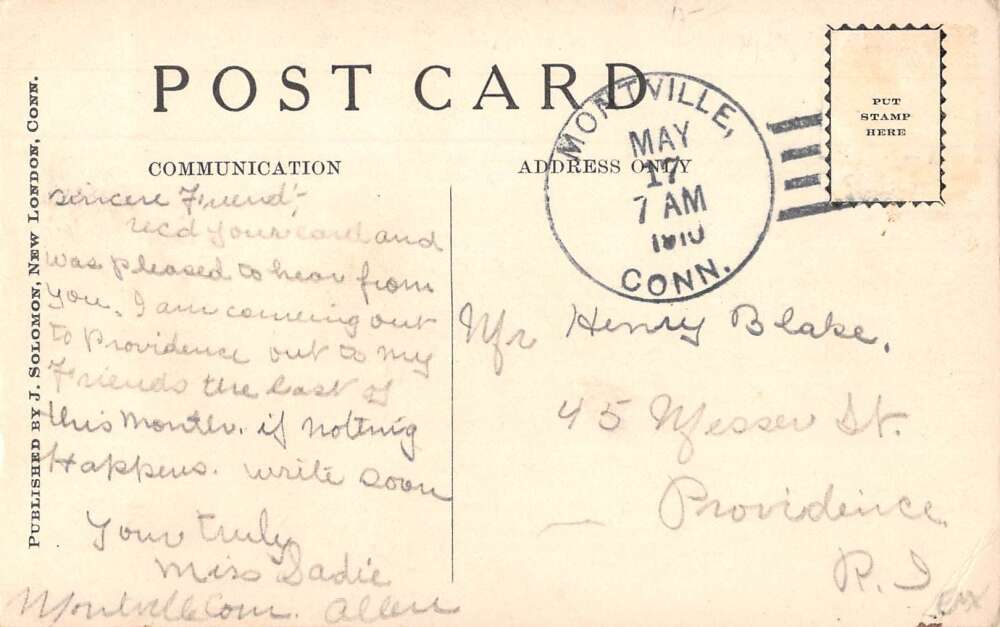 POST CARD
COMMUNICATION
ADDRESS ONLY
PUT
STAMP
HERE
MONTVILLE,
MAY
17
7 AM
1910
CONN.
PUBLISHED BY J. SOLOMON, NEW LONDON, CONN.
Sincere Friend;
recd your card and
was pleased to hear from
you. I am comeing out
to Providence out to my
Friends the last of
this Month. if nothing
Happens. write soon
Your truly
Miss Sadie
Montville Conn. Allen
Mr Henry Blake.
45 Messer St.
Providence
R.I